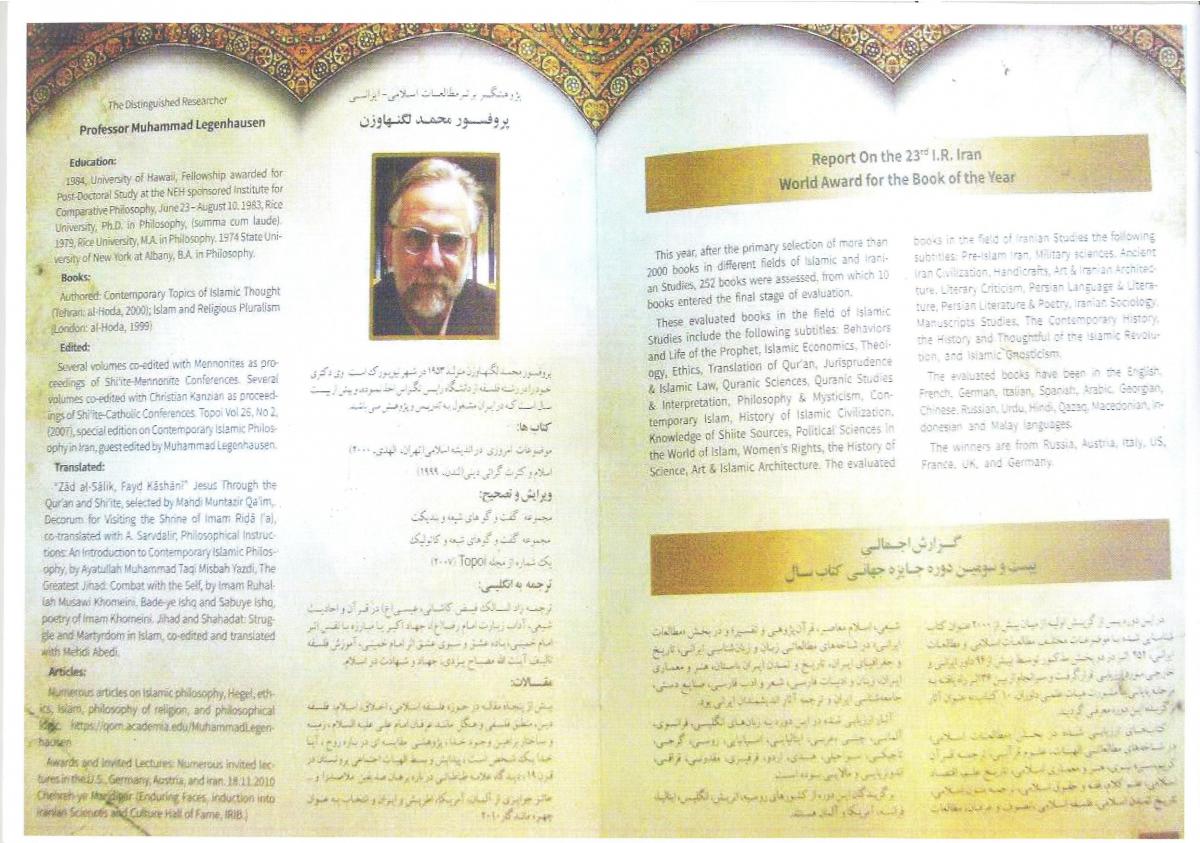 The Distinguished Researcher
Professor Muhammad Legenhausen
Education:
1984, University of Hawaii, Fellowship awarded for
Post-Doctoral Study at the NEH sponsored Institute for
Comparative Philosophy, June 23 – August 10. 1983, Rice
University, Ph.D. in Philosophy, (summa cum laude).
1979, Rice University, M.A. in Philosophy. 1974 State Uni-
versity of New York at Albany, B.A. in Philosophy.
Books:
Authored: Contemporary Topics of Islamic Thought
(Tehran: al-Hoda, 2000); Islam and Religious Pluralism
(London: al-Hoda, 1999)
Edited:
Several volumes co-edited with Mennonites as pro-
ceedings of Shi'ite-Mennonite Conferences. Several
volumes co-edited with Christian Kanzian as proceed-
ings of Shi'ite-Catholic Conferences. Topoi Vol 26, No 2,
(2007), special edition on Contemporary Islamic Philos-
ophy in Iran, guest edited by Muhammad Legenhausen.
Translated:
"Zād al-Sālik, Fayd Kāshānī" Jesus Through the
Qur'an and Shi'ite, selected by Mahdi Muntazir Qa'im,
Decorum for Visiting the Shrine of Imam Riḍā ('a),
co-translated with A. Sarvdalir, Philosophical Instruc-
tions: An Introduction to Contemporary Islamic Philos-
ophy, by Ayatullah Muhammad Taqi Misbah Yazdi, The
Greatest Jihad: Combat with the Self, by Imam Ruhal-
lah Musawi Khomeini, Bade-ye Ishq and Sabuye Ishq,
poetry of Imam Khomeini. Jihad and Shahadat: Strug-
gle and Martyrdom in Islam, co-edited and translated
with Mehdi Abedi.
Articles:
Numerous articles on Islamic philosophy, Hegel, eth-
ics, Islam, philosophy of religion, and philosophical
logic. https://qom.academia.edu/MuhammadLegen-
hausen
Awards and Invited Lectures: Numerous invited lec-
tures in the U.S., Germany, Austria, and Iran. 18.11.2010
Chehreh-ye Mandigar (Enduring Faces, Induction into
Iranian Sciences and Culture Hall of Fame, IRIB.)
پژوهشگر برتر مطالعات اسلامی - ایرانی
پروفسور محمد لگنهاوزن
پروفسور محمد لگنهاوزن متولد ۱۹۵۳ در شهر نیویورک است. وی دکتری
خود را در رشته فلسفه از دانشگاه رایس تگزاس اخذ نموده و بیش از بیست
سال است که در ایران مشغول به تدریس و پژوهش می باشد.
کتاب ها:
موضوعات امروزی در اندیشه اسلامی (تهران، الهدی، ۲۰۰۰)
اسلام و کثرت گرائی دینی (لندن، ۱۹۹۹)
ویرایش و تصحیح:
مجموعه گفت و گو های شیعه و بندیکت
مجموعه گفت و گو های شیعه و کاتولیک
یک شماره از مجله Topoi (۲۰۰۷)
ترجمه به انگلیسی:
ترجمه زاد السالک فیض کاشانی، عیسی (ع) در قرآن و احادیث
شیعی، آداب زیارت امام رضا (ع)، جهاد اکبر یا مبارزه با نفس اثر
امام خمینی، باده عشق و سبوی عشق اثر امام خمینی، آموزش فلسفه
تالیف آیت الله مصباح یزدی، جهاد و شهادت در اسلام.
مقالات:
بیش از پنجاه مقاله در حوزه فلسفه اسلامی، اخلاق، اسلام، فلسفه
دین، منطق فلسفی و هگل مانند عرفان امام علی علیه السلام، زمینه
و ساختار براهین وجود خدا، پژوهشی مقایسه ای درباره روح، آیا
خدا یک شخص است، پیدایش و بسط الهیات اجتماعی پروتستان در
قرن ۱۹، دیدگاه علامه طباطبائی درباره برهان صدیقین ملاصدرا و ...
حائز جوایزی از آلمان، آمریکا، اطریش و ایران و انتخاب به عنوان
چهره ماندگار ۲۰۱۰
Report On the 23rd I.R. Iran
World Award for the Book of the Year
This year, after the primary selection of more than
2000 books in different fields of Islamic and Irani-
an Studies, 252 books were assessed, from which 10
books entered the final stage of evaluation.
These evaluated books in the field of Islamic
Studies include the following subtitles: Behaviors
and Life of the Prophet, Islamic Economics, Theol-
ogy, Ethics, Translation of Qur'an, Jurisprudence
& Islamic Law, Quranic Sciences, Quranic Studies
& Interpretation, Philosophy & Mysticism, Con-
temporary Islam, History of Islamic Civilization,
Knowledge of Shiite Sources, Political Sciences in
the World of Islam, Women's Rights, the History of
Science, Art & Islamic Architecture. The evaluated
books in the field of Iranian Studies the following
subtitles: Pre-Islam Iran, Military sciences, Ancient
Iran Civilization, Handicrafts, Art & Iranian Architec-
ture, Literary Criticism, Persian Language & Litera-
ture, Persian Literature & Poetry, Iranian Sociology,
Manuscripts Studies, The Contemporary History,
the History and Thoughtful of the Islamic Revolu-
tion, and Islamic Gnosticism.
The evaluated books have been in the English,
French, German, Italian, Spanish, Arabic, Georgian,
Chinese, Russian, Urdu, Hindi, Qazaq, Macedonian, In-
donesian and Malay languages.
The winners are from Russia, Austria, Italy, US,
France, UK, and Germany.
گزارش اجمالی
بیست و سومین دوره جایزه جهانی کتاب سال
در این دوره پس از گزینش اولیه از میان بیش از ۲۰۰۰ عنوان کتاب
شناسایی شده با موضوعات مختلف مطالعات اسلامی و مطالعات
ایرانی، ۲۵۲ اثر در دو بخش مذکور توسط بیش از ۹۴ داور ایرانی و
خارجی مورد ارزیابی قرار گرفت و سرانجام از بین ۱۳۶ اثر راه یافته به
مرحله پایانی با مشورت هیات علمی داوران، ۱۰ کتاب به عنوان آثار
برگزیده این دوره معرفی گردید.
کتاب های ارزیابی شده در بخش مطالعات اسلامی
در شاخه های مطالعاتی الهیات، علوم قرآنی، ترجمه قرآن
کریم، سیره نبوی، هنر و معماری اسلامی، تاریخ علم، اقتصاد
اسلامی، علم کلام، فقه و حقوق اسلامی، ترجمه متون اسلامی،
تاریخ تمدن اسلامی، فلسفه اسلامی، تصوف و عرفان، مطالعات
شیعی، اسلام معاصر، قرآن پژوهی و تفسیر؛ و در بخش مطالعات
ایرانی، در شاخه های مطالعاتی زبان و زبان شناسی ایرانی، تاریخ
و جغرافیای ایران، تاریخ و تمدن ایران باستان، هنر و معماری
ایران، زبان و ادبیات فارسی، شعر و ادب فارسی، صنایع دستی،
جامعه شناسی ایران و ترجمه آثار اندیشمندان ایرانی بود.
آثار ارزیابی شده در این دوره به زبان های انگلیسی، فرانسوی،
آلمانی، چینی، عربی، ایتالیایی، اسپانیایی، روسی، گرجی،
تاجیکی، سواحیلی، هندی، اردو، قرقیزی، مقدونی، قزاقی،
اندونزیایی و مالایی بوده است.
برگزیدگان این دوره از کشورهای روسیه، اتریش، انگلیس، ایتالیا،
فرانسه، آمریکا و آلمان هستند.